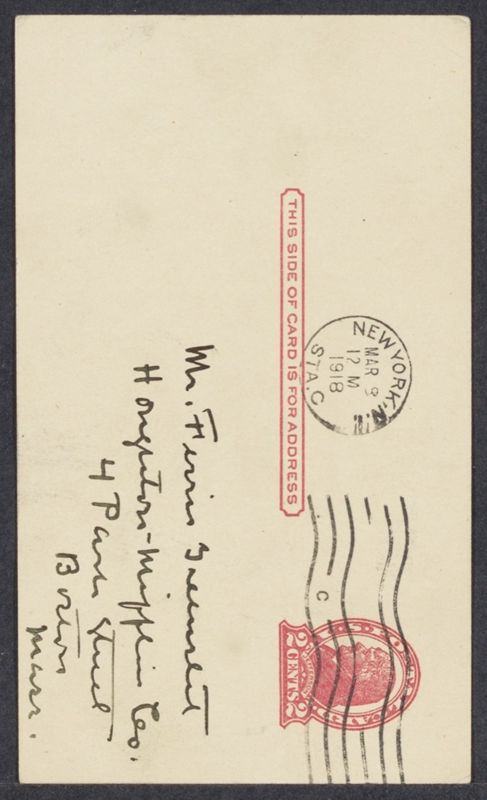 THIS SIDE OF CARD IS FOR ADDRESS
NEW YORK, N.Y.
MAR 8
12 M
1918
STA. C
C
2 CENTS 2
Mr. Ferris Greenslet
Houghton-Mifflin Co.
4 Park Street
Boston
Mass.